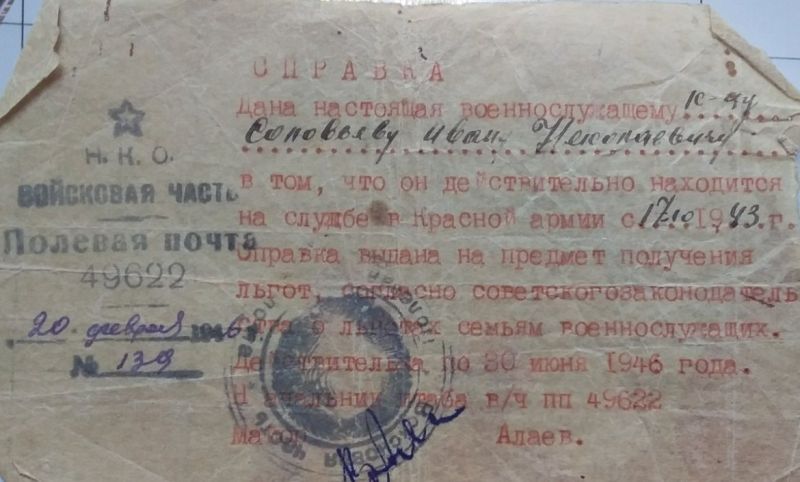 СПРАВКА
Дана настоящая военнослужащему к-цу
Соловьеву Иван. Николаевичу
в том, что он действительно находится
на службе в Красной армии с 17.10.1943.г.
Справка выдана на предмет получения
льгот, согласно советскогозаконодатель
ства о льготах семьям военнослужащих.
Действительна по 30 июня 1946 года.
Начальник штаба в/ч пп 49622
Майор Алаев.
Н.К.О.
ВОЙСКОВАЯ ЧАСТЬ
Полевая почта
49622
20. февраля 1946г.
№ 139